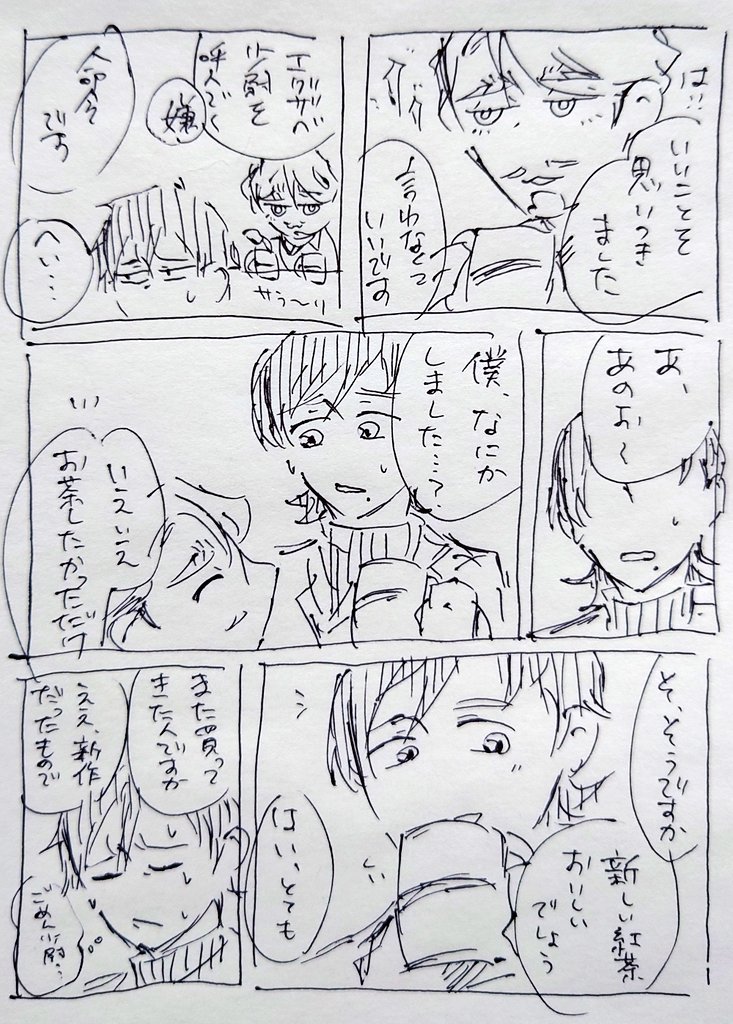 は…
いいことを
思いつき
ました
言わなくて
いいです
エグザベ
少尉を
呼んでく
嫌
命令
です
へい…
サラ〜リ
あ、
あのお〜
僕、なにか
しました…?
いえいえ
お茶したかっただけ
そ、そうですか
新しい紅茶
おいしい
でしょう
はい、とても
また買って
きたんですか
ええ、新作
だったもので
ごめん少尉…